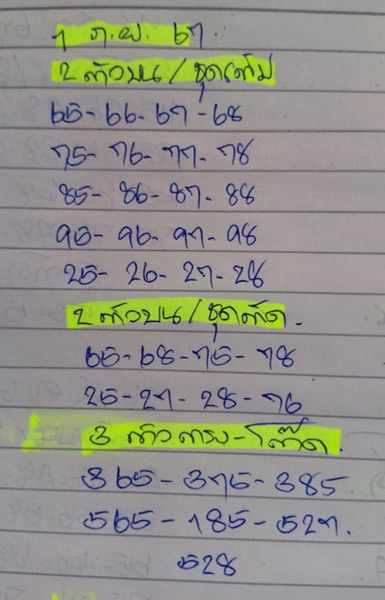 1 ก.ย. 67
2 ตัวบน / ชุดเต็ม
65-66-67-68
75-76-77-78
85-86-87-88
95-96-97-98
25-26-27-28
2 ตัวบน / ชุดตัด.
65-68-75-78
25-27-28-76
3 ตัวตรง-โต๊ด.
365-375-385
565-185-527.
528